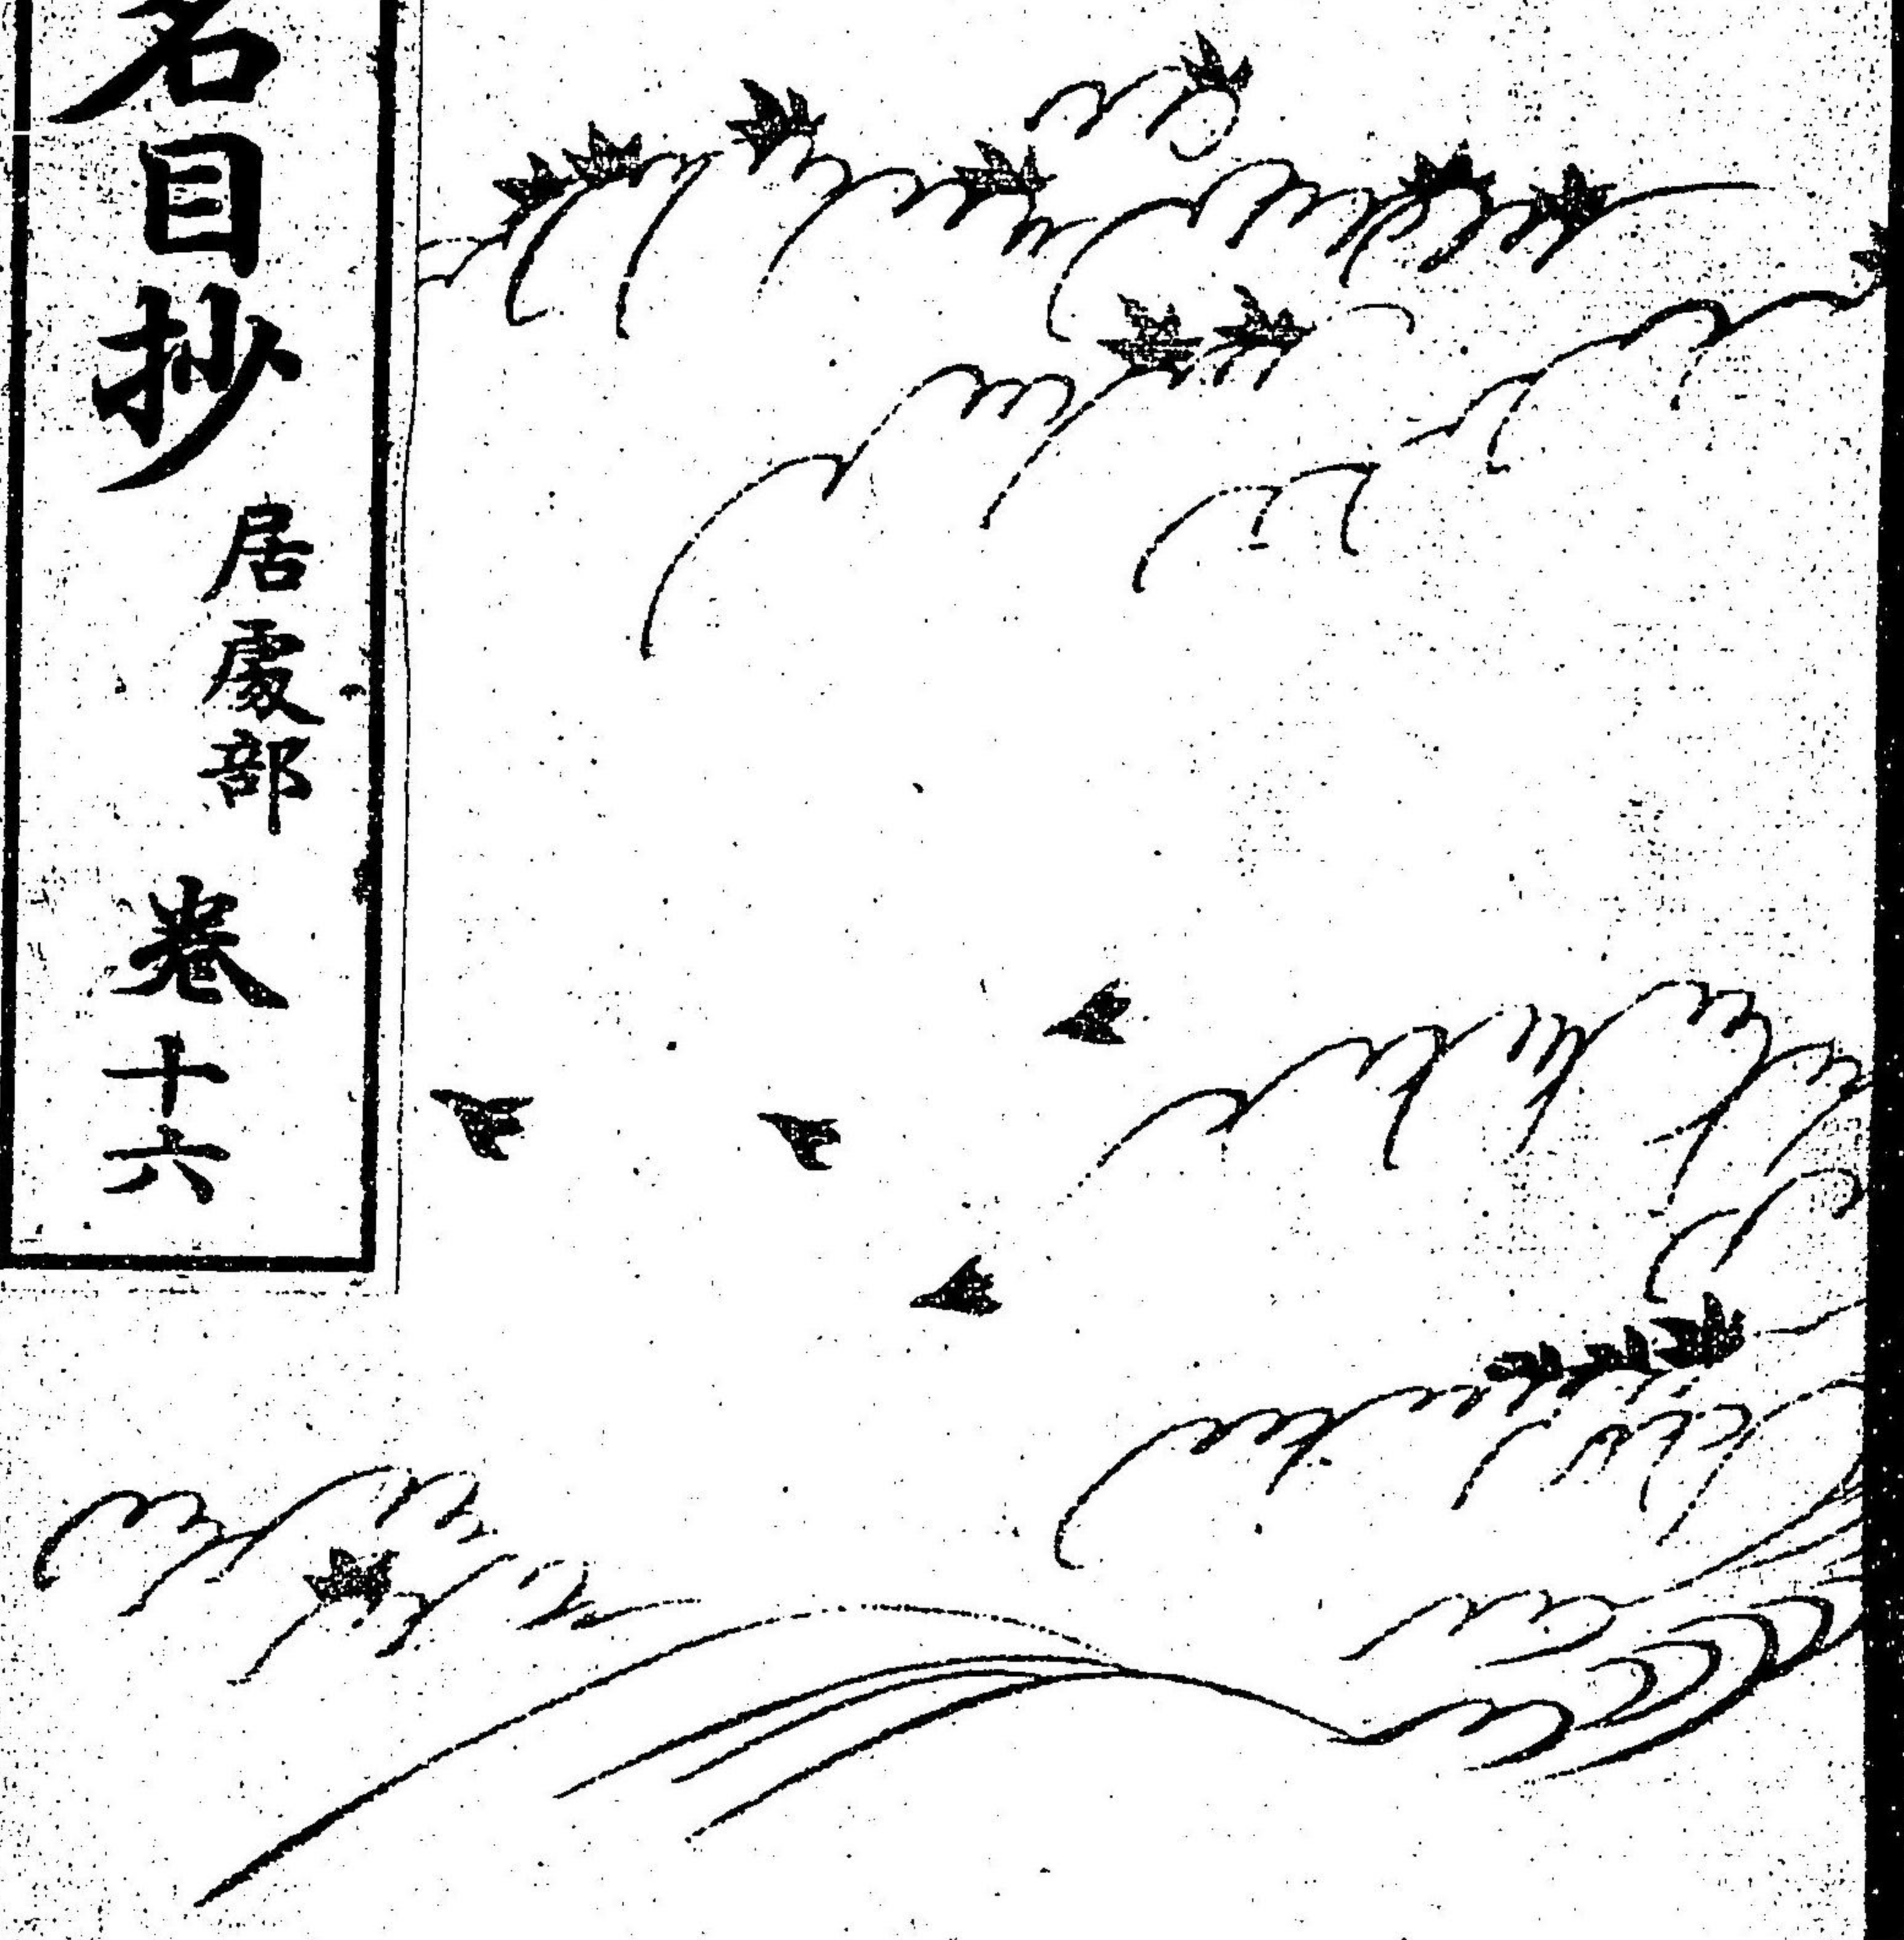 名目抄 居處部 卷十六